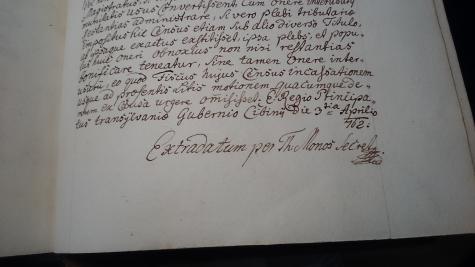 publicatus Usus Convertissent, Cum onere
Restantias administrare, Si vero plebi tributario
impositus hic Census etiam Sub alio diverso Titulo,
exactus exstitisset, ipsa plebs, et popu-
lus huic oneri obnoxius non nisi restantias
bonificare teneatur, Sine tamen onere inter-
usurii, eo quod Fiscus hujus Census incassationem
usque ad praesentis Litis motionem quacumque de-
nem ex Causa urgere omisisset. E Regio Principa-
tus Transylvanici Gubernio Cibinij Die 3tia Aprilis
762:
Extradatum per Th: Monos Secret: